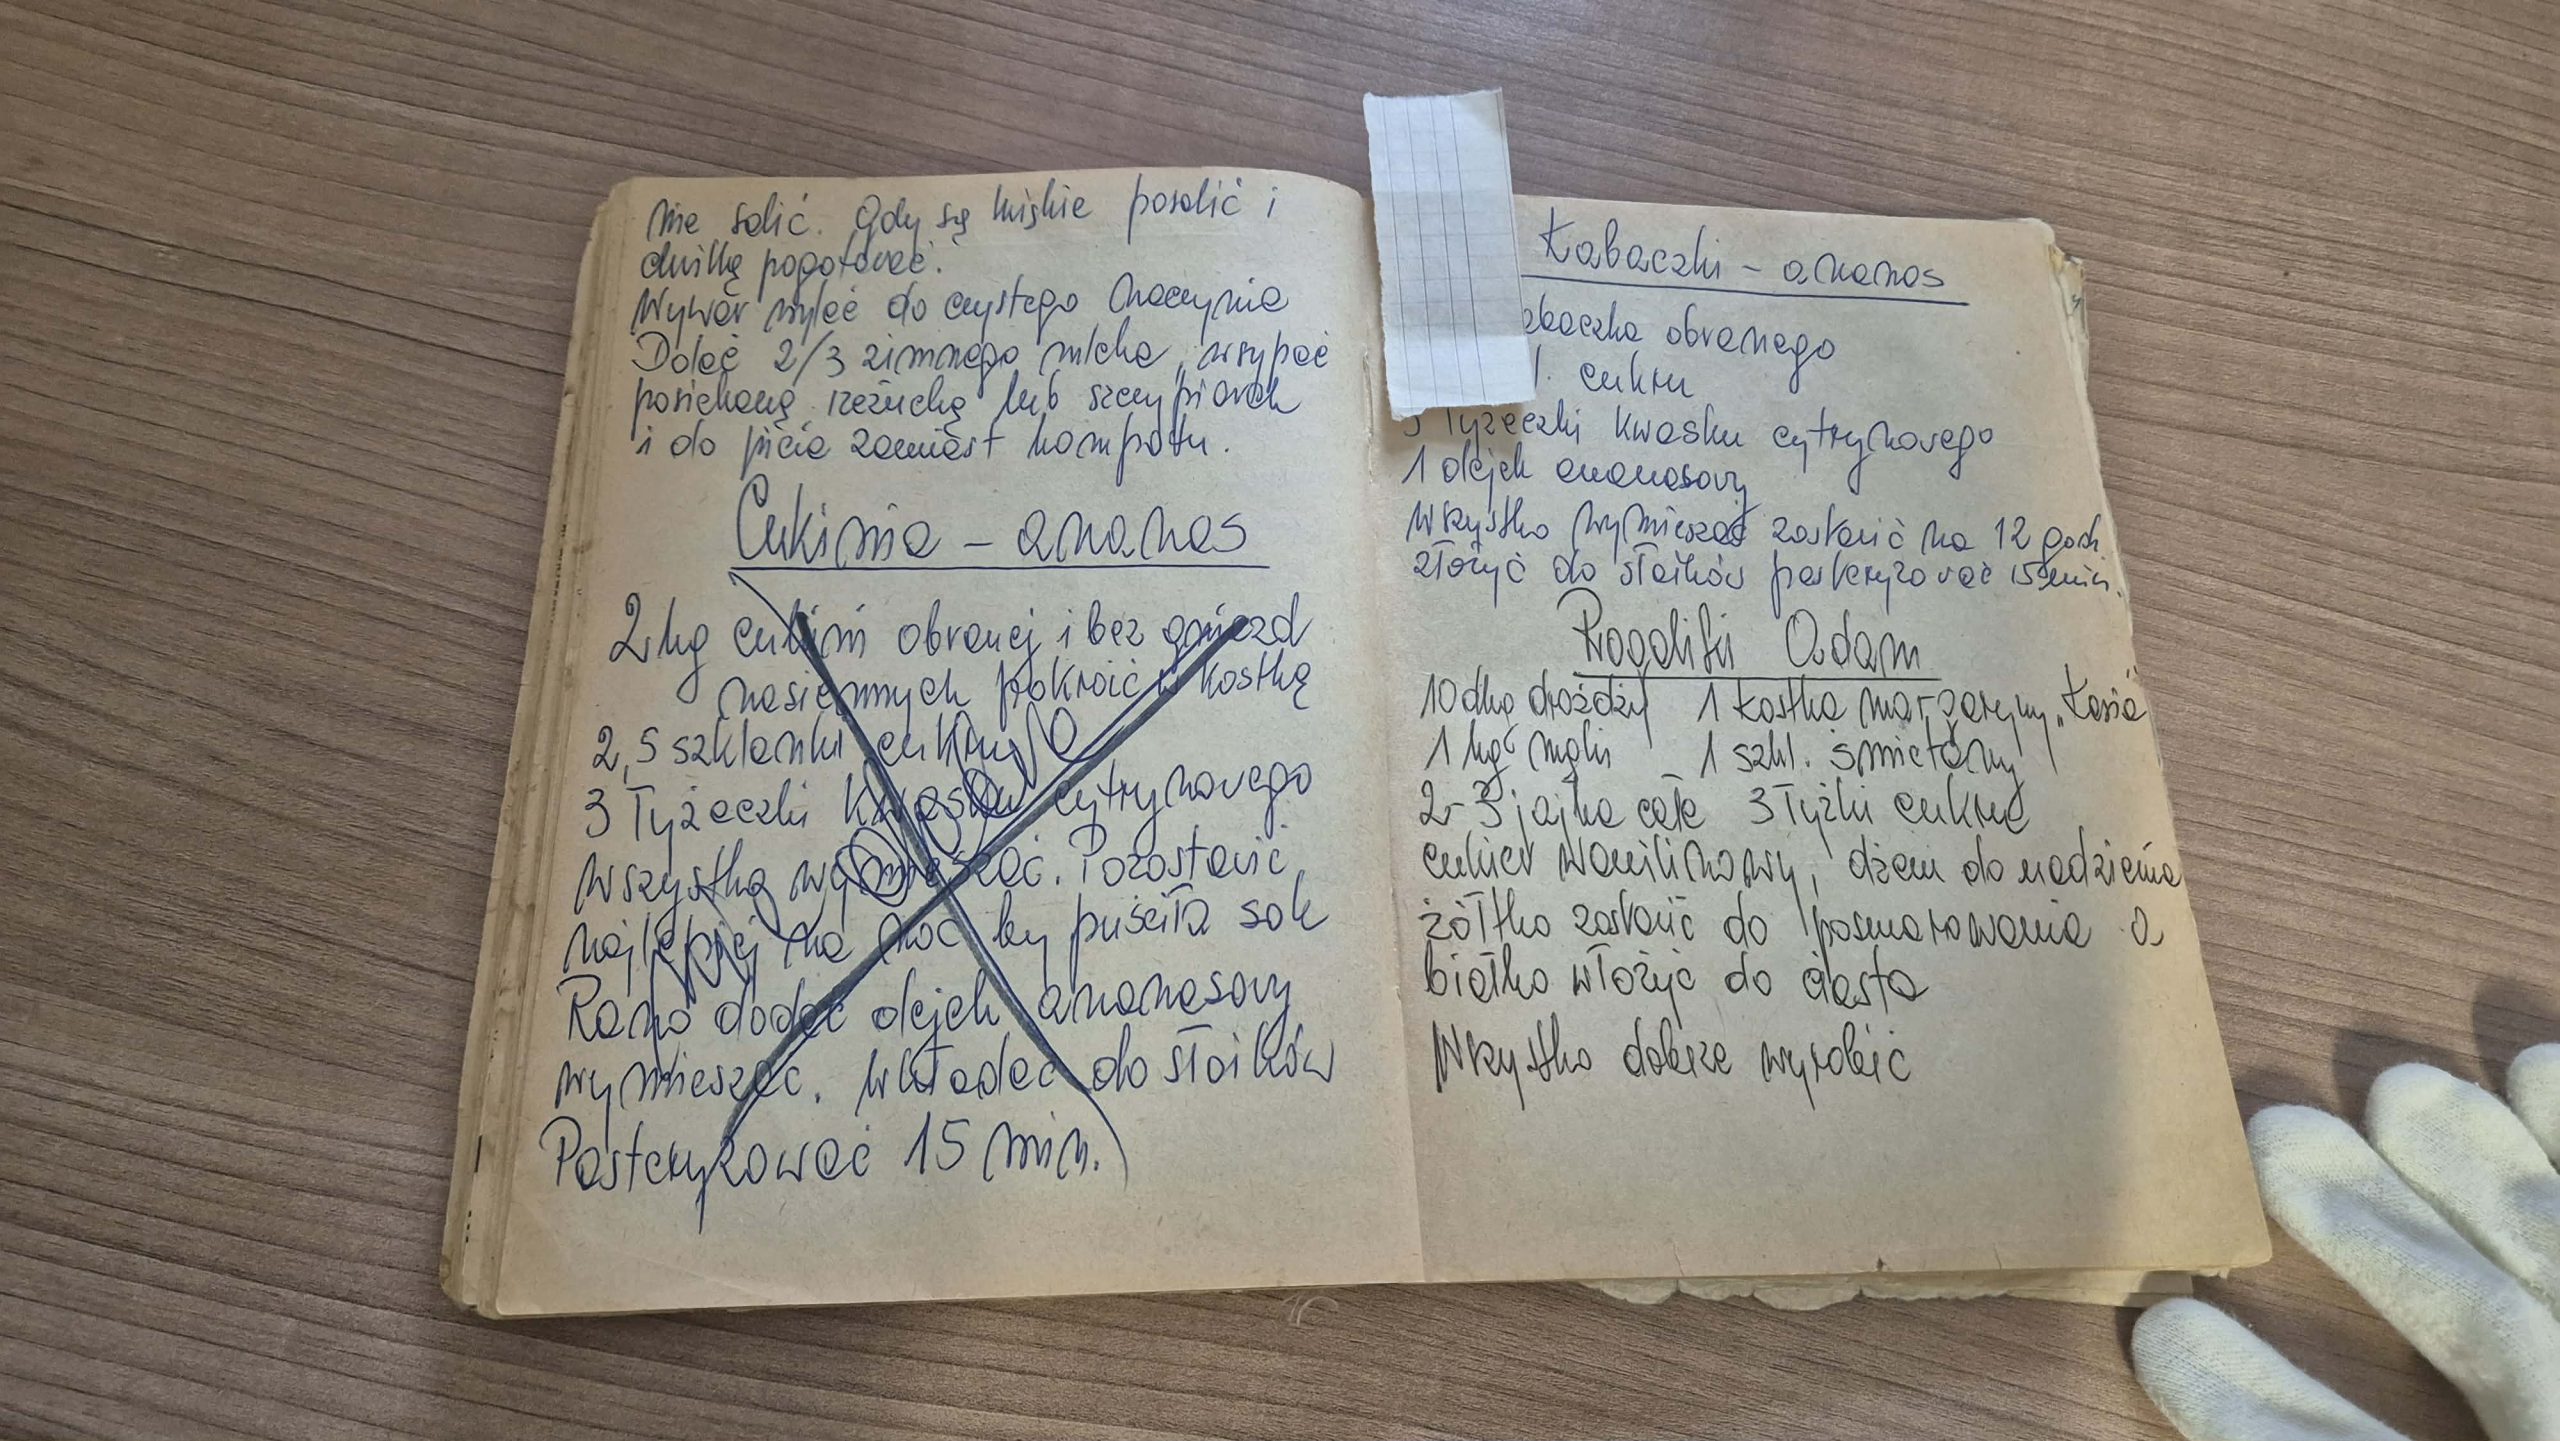 nie solić. Gdy są miękie posolić i
chwilkę pogotować.
Wywar wylać do czystego naczynia
Dolać 2/3 zimnego mleka, wsypać
posiekaną rzeżuchę lub szczypiorek
i do picia zamiast kompotu.
Cukinia - ananas
2 kg cukini obranej i bez gniazd
nasiennych pokroić w kostkę
2,5 szklanki cukru
3 łyżeczki kwasku cytrynowego
wszystko wymieszać. Pozostawić
najlepiej na noc by puściła sok
Rano dodać olejek ananasowy
wymieszać. Wkładać do słoików
Pasteryzować 15 min.
Kabaczki - ananos
abaczka obranego
l. cukru
3 łyżeczki kwasku cytrynowego
1 olejek ananasowy
Wszystko wymieszać zostawić na 12 godz.
złożyć do słoików pasteryzować 15 min.
Rogaliki Adam
10 dkg drożdży 1 kostka margaryny „Kasia"
1 kg mąki 1 szkl. śmietany
2-3 jajka całe 3 łyżki cukru
cukier waniliowy, dżem do nadzienia
żółtko zostawić do posmarowania a
białko włożyć do ciasta
Wszystko dobrze wyrobić